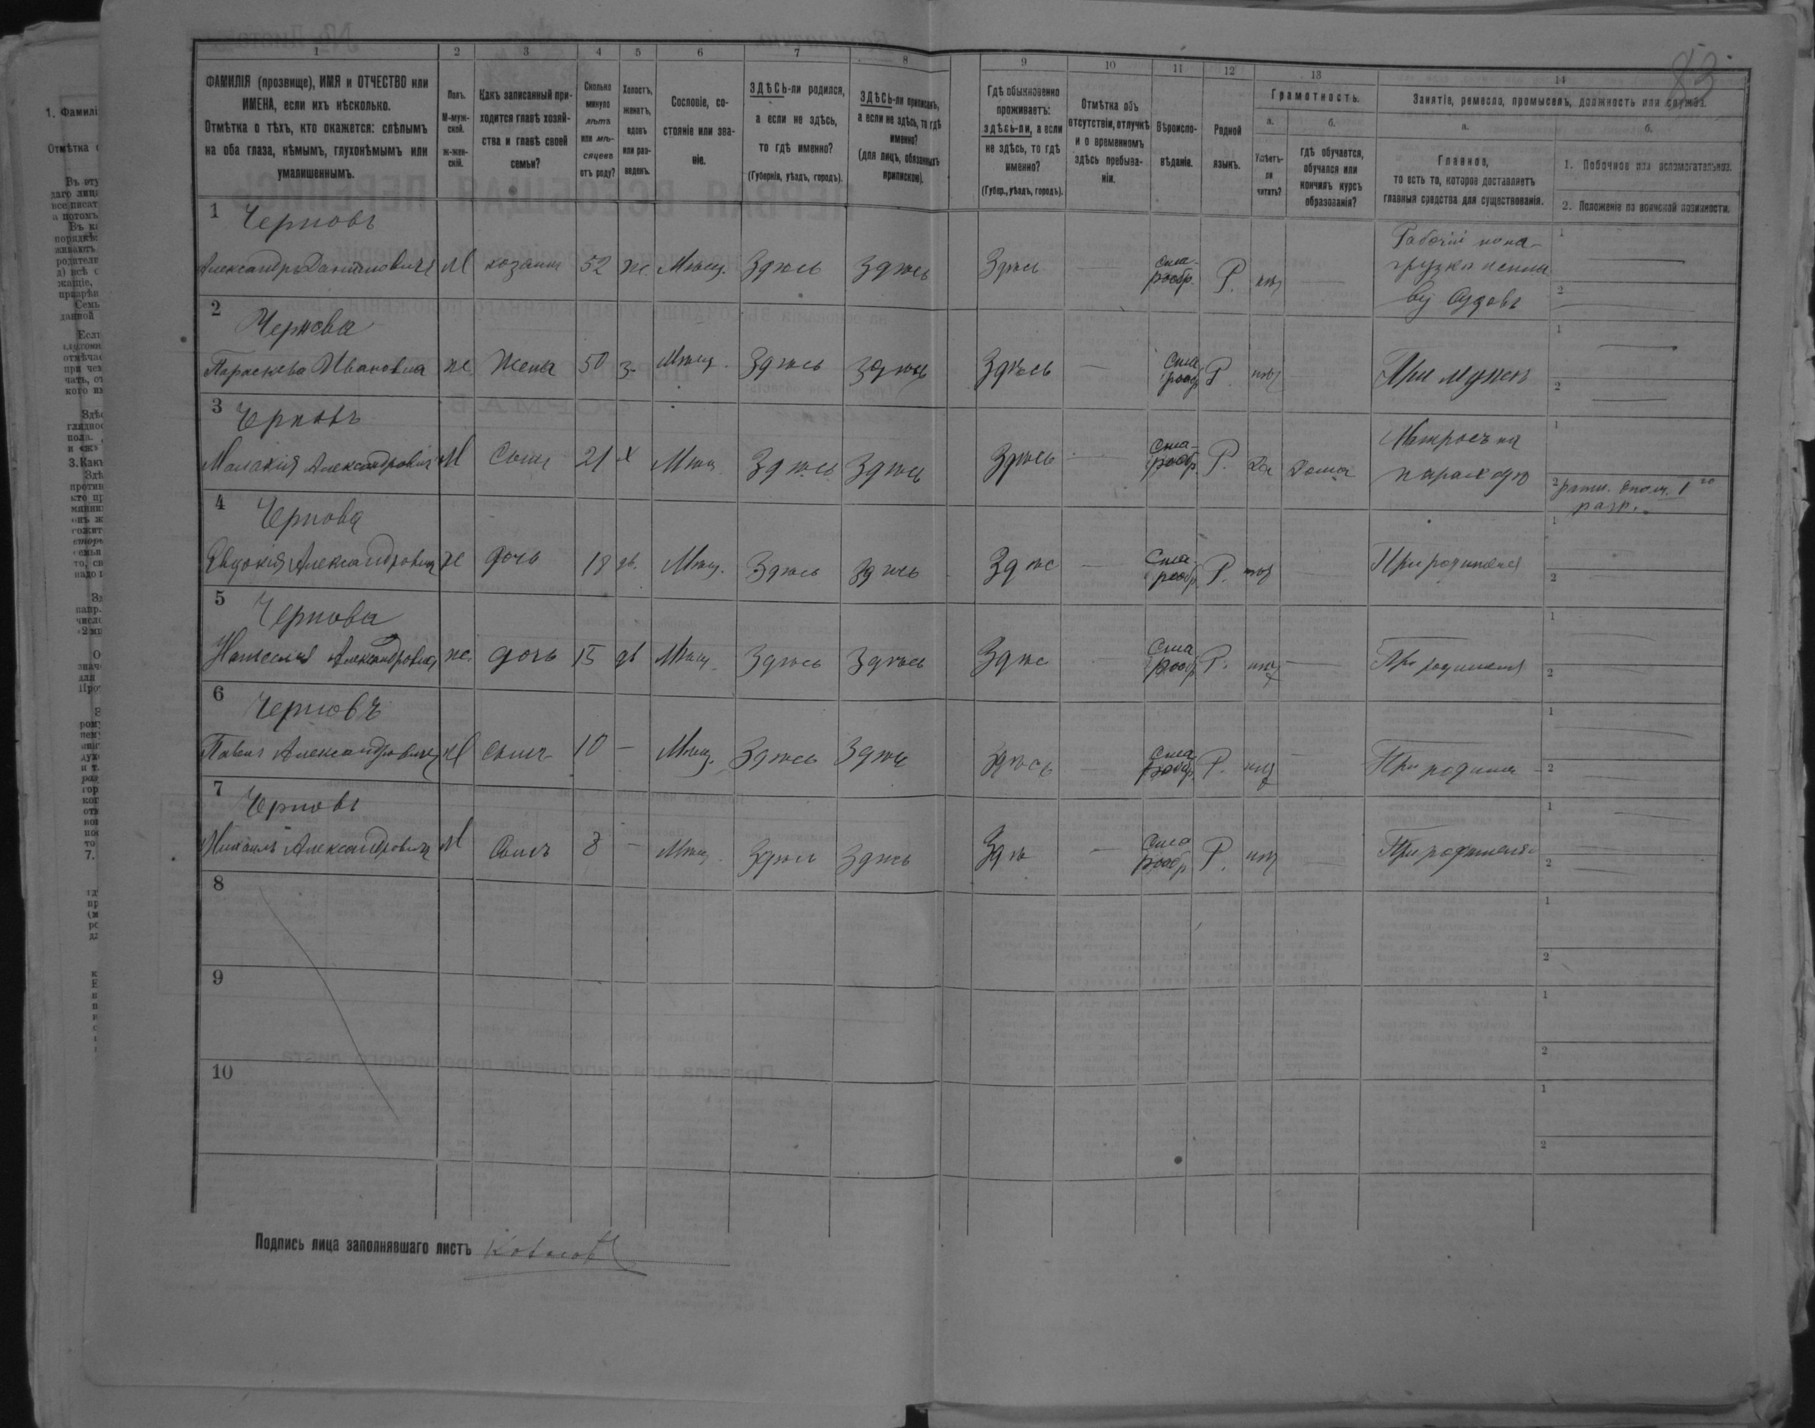 83
1 2 3 4 5 6 7 8 9 10 11 12 13 14
ФАМИЛІЯ (прозвище), ИМЯ и ОТЧЕСТВО или
ИМЕНА, если ихъ нѣсколько.
Отмѣтка о тѣхъ, кто окажется: слѣпымъ
на оба глаза, нѣмымъ, глухонѣмымъ или
умалишеннымъ.
Полъ.
М-муж-
ской.
Ж-жен-
скій.
Какъ записанный при-
ходится главѣ хозяй-
ства и главѣ своей
семьи?
Сколько
минуло
лѣтъ
или мѣ-
сяцевъ
отъ роду?
Холостъ,
женатъ,
вдовъ
или раз-
веденъ.
Сословіе, со-
стояніе или зва-
ніе.
ЗДѢСЬ-ли родился,
а если не здѣсь,
то гдѣ именно?
(Губернія, уѣздъ, городъ).
ЗДѢСЬ-ли приписанъ,
а если не здѣсь, то гдѣ
именно?
(для лицъ, обязанныхъ
припискою).
Гдѣ обыкновенно
проживаетъ:
здѣсь-ли, а если
не здѣсь, то гдѣ
именно?
(Губер., уѣздъ, городъ).
Отмѣтка объ
отсутствіи, отлучкѣ
и о временномъ
здѣсь пребыва-
ніи.
Вѣроиспо-
вѣданіе.
Родной
языкъ.
Грамотность.
а.
Умѣетъ-
ли
читать?
б.
гдѣ обучается,
обучался или
кончилъ курсъ
образованія?
Занятіе, ремесло, промыселъ, должность или служба.
а.
Главное,
то есть то, которое доставляетъ
главныя средства для существованія.
б.
1. Побочное или вспомогательное.
2. Положеніе по воинской повинности.
1 Черновъ
Александръ М хозяинъ 52 ж Мѣщ. Здѣсь Здѣсь Здѣсь — Старообр. Р. нѣтъ —
Рабочій
судовъ
2 Чернова
Ивановна ж. Жена 50 з. Мѣщ. Здѣсь Здѣсь Здѣсь — Старообр. Р. нѣтъ При мужѣ
3 Черновъ
Малахія Александровичъ М Сынъ 21 х Мѣщ Здѣсь Здѣсь Здѣсь Старообр. Р. Да Дома
Матросъ на
пароходѣ
2 ратн. ополч. 1го
разр.
4 Чернова
Евдокія Александровна ж дочь 18 дѣ. Мѣщ. Здѣсь Здѣсь Здѣс — Старообр. Р. нѣтъ При родителяхъ
5 Чернова
Александровна ж. дочь 15 дѣ Мѣщ. Здѣсь Здѣсь Здѣс Старообр. Р. нѣтъ — При родителяхъ
6 Черновъ
Павелъ Александровичъ М Сынъ 10 — Мѣщ. Здѣсь Здѣсь Здѣсь — Старообр. Р. нѣтъ При
7 Черновъ
Михаилъ Александровичъ М Сынъ 8 — Мѣщ. Здѣсь Здѣсь — Старообр. Р. нѣтъ При родителяхъ
8
9
10
Подпись лица заполнявшаго листъ